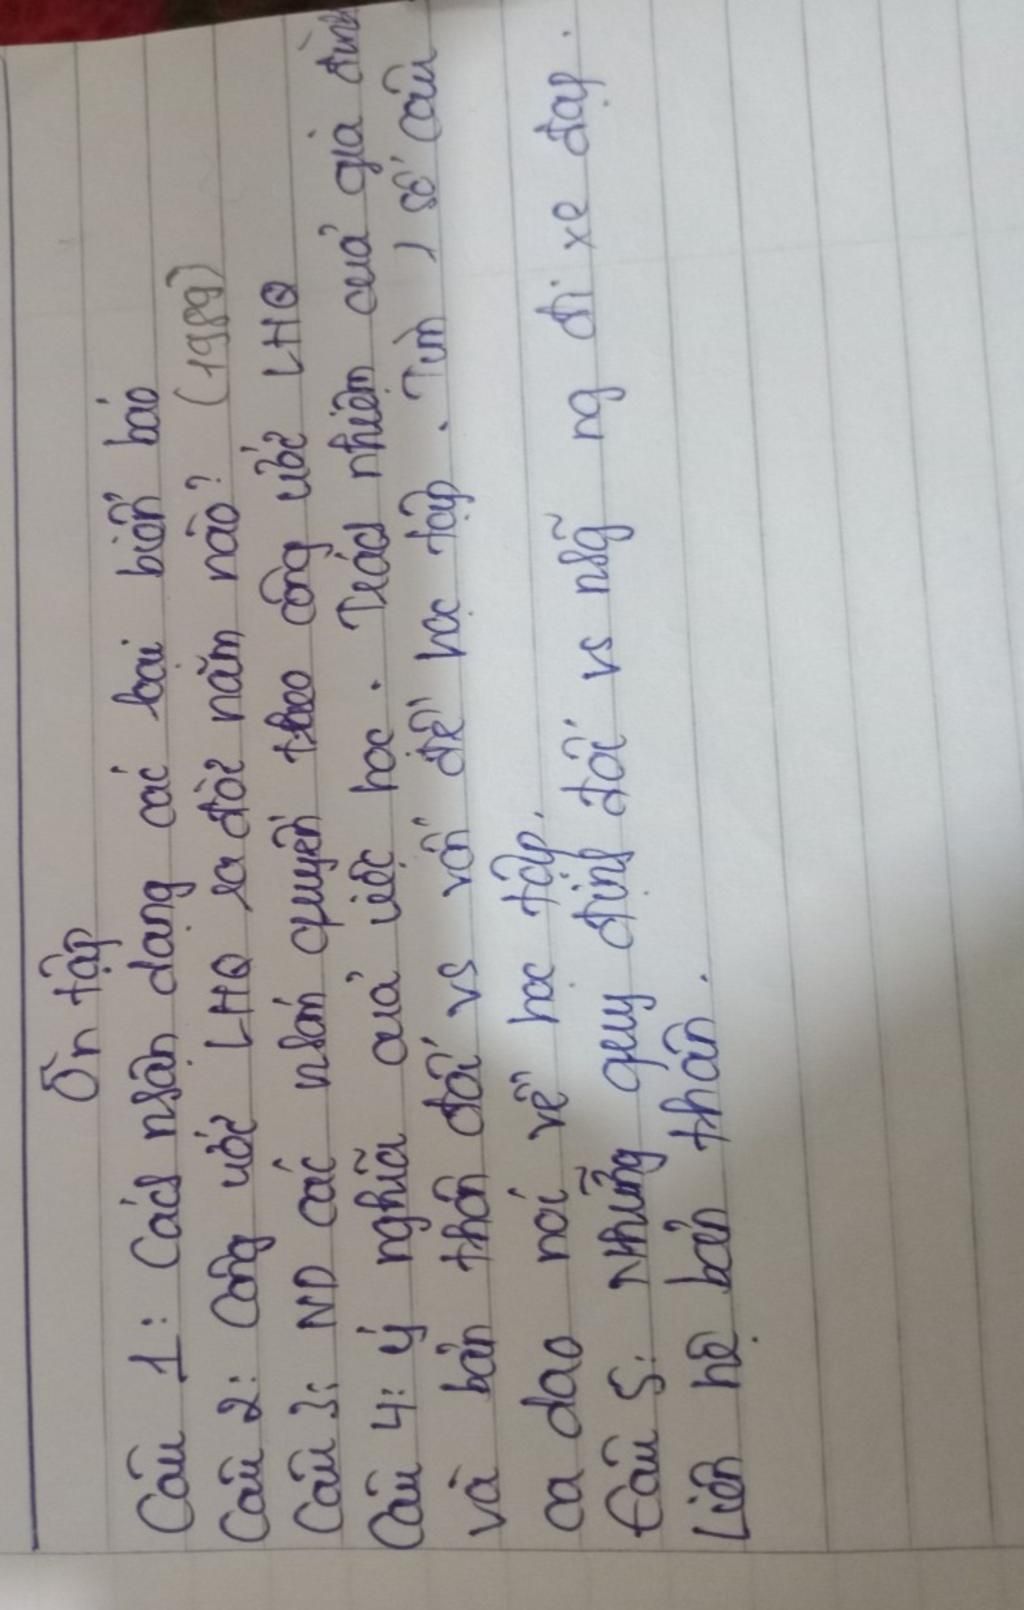 Ôn tập
Câu 1: Cách nhận dạng các loại biển báo
Câu 2: Công ước LHQ ra đời năm nào? (1989)
Câu 3: ND các nhóm quyền theo công ước LHQ
Câu 4: ý nghĩa của việc học. Trách nhiệm của gia đình
và bản thân đối vs vấn đề học tập. Tìm 1 số câu
ca dao nói về học tập.
Câu 5: Những quy định đối vs nhg ng đi xe đạp.
Liên hệ bản thân.